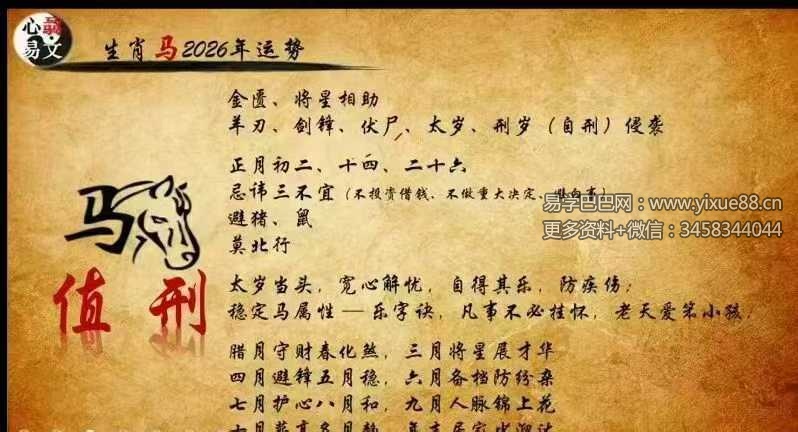 心载
易文
生肖马2026年运势
金匮、将星相助
羊刃、剑锋、伏尸、太岁、刑岁（自刑）侵袭
正月初二、十四、二十六
忌讳三不宜（不投资借钱、不做重大决定、
避猪、鼠
莫北行
易学巴巴网：www.yixue88.cn
更多资料+微信：3458344044
马
值 刑
太岁当头，宽心解忧，自得其乐，防疾伤；
稳定马属性——乐字诀，凡事不必挂怀，老天爱笨小孩.
腊月守财春化煞，三月将星展才华
四月避锋五月稳，六月备档防纷杂
七月护心八月和，九月人脉锦上花